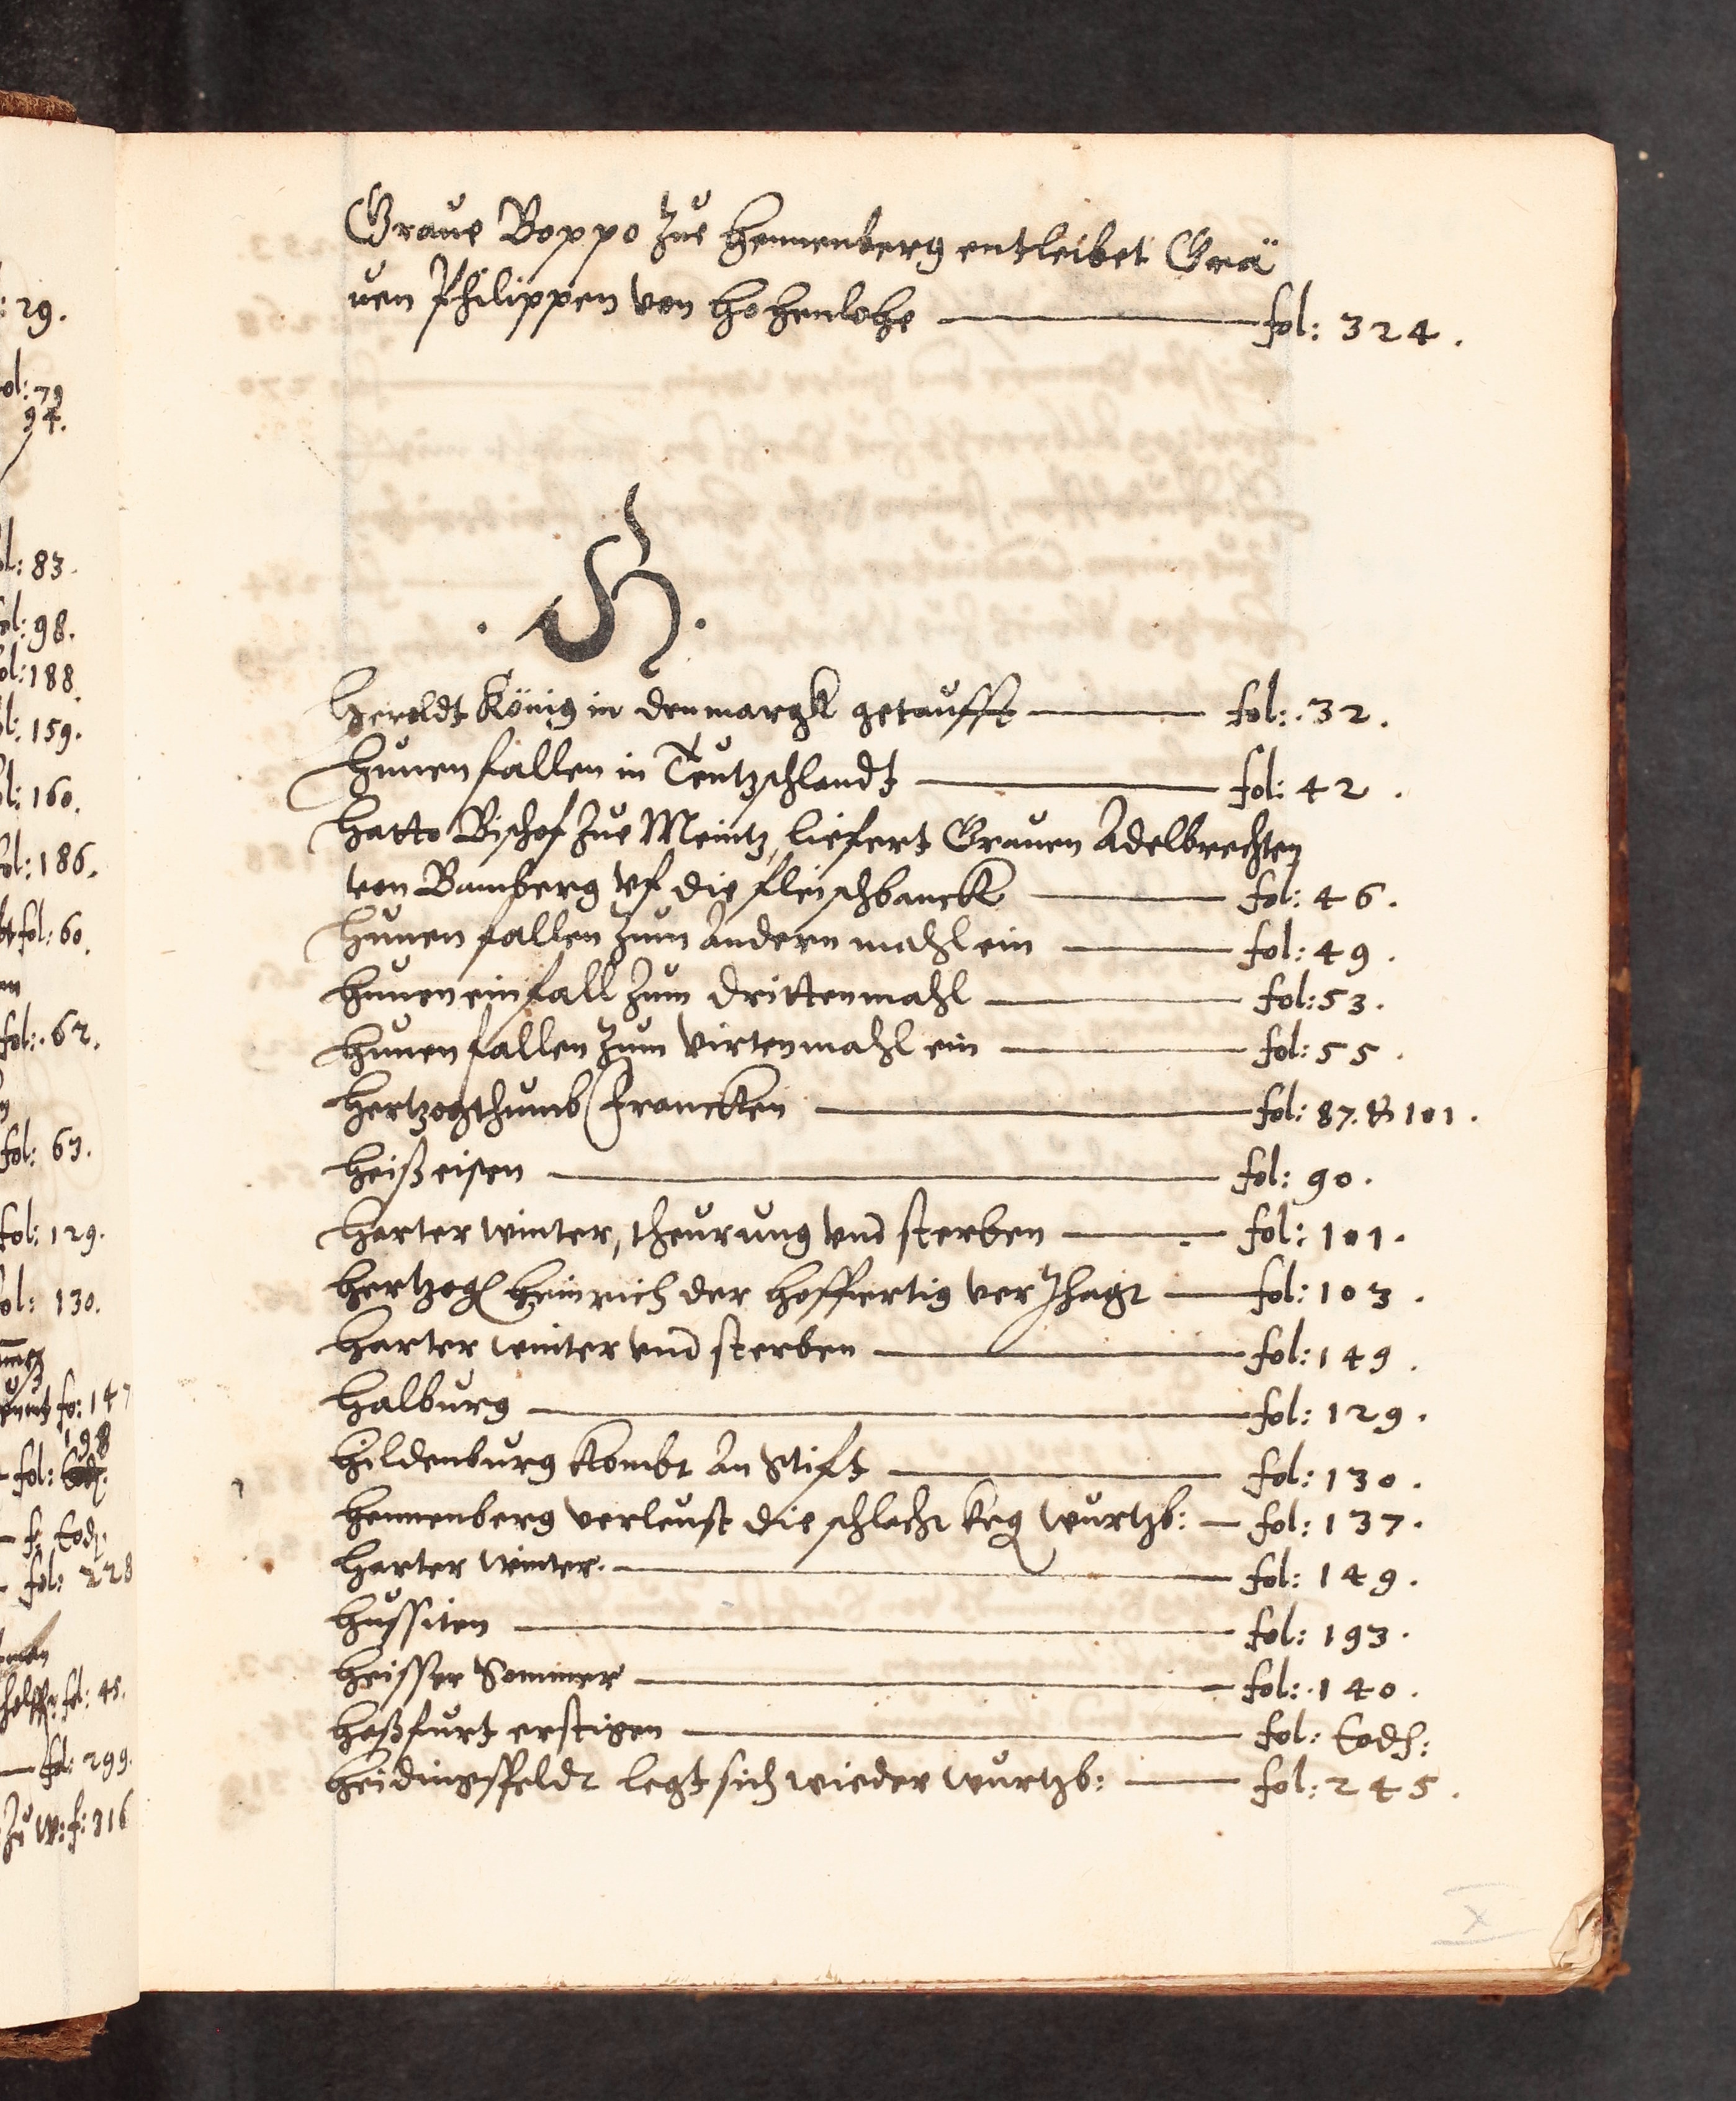 Graue Boppo zue Hennenberg entleibet Grä
uen Philippen von Hohenlohe — fol: 324.
. H .
Heroldt König in Denmargk getaufft — fol: 32.
Hunen fallen in Teutzschlandt — fol: 42.
Hatto Bischof zue Meintz, liefert Grauen Adelbrechten
von Bamberg uf die fleischbanck — fol: 46.
Hunen fallen zum Andern mahl ein — fol: 49.
Hunen einfall zum drittenmahl — fol: 53.
Hunen fallen zum Virtenmahl ein — fol: 55.
Hertzogthumb Francken — fol: 87. & 101.
Heiß eisen — fol: 90.
Harter winter, theurung und sterben — fol: 101.
Hertzog Heinrich der hoffertig verJhagt — fol: 103.
Harter winter und sterben — fol: 149.
Halburg — fol: 129.
Hildenburg kombt An Stift — fol: 130.
Hennenberg verleust die schlacht keg Wurtzb: — fol: 137.
Harter winter. — fol: 149.
Hussiten — fol: 193.
Heisser Sommer — fol: 140.
Haßfurt erstigen — fol: Eod:
Heidingsfeldt legt sich wieder Wurtzb: — fol: 245.
: 29.
ol: 79
94.
ol: 83.
ol: 98.
ol: 188.
ol: 159.
ol: 160.
fol: 186.
fol: 60.
fol: 62.
fol: 63.
fol: 129.
fol: 130.
fo: 147
198
fol:
f: Eod:
fol: 228
fol: 45.
fol: 299.
zu W: f: 316